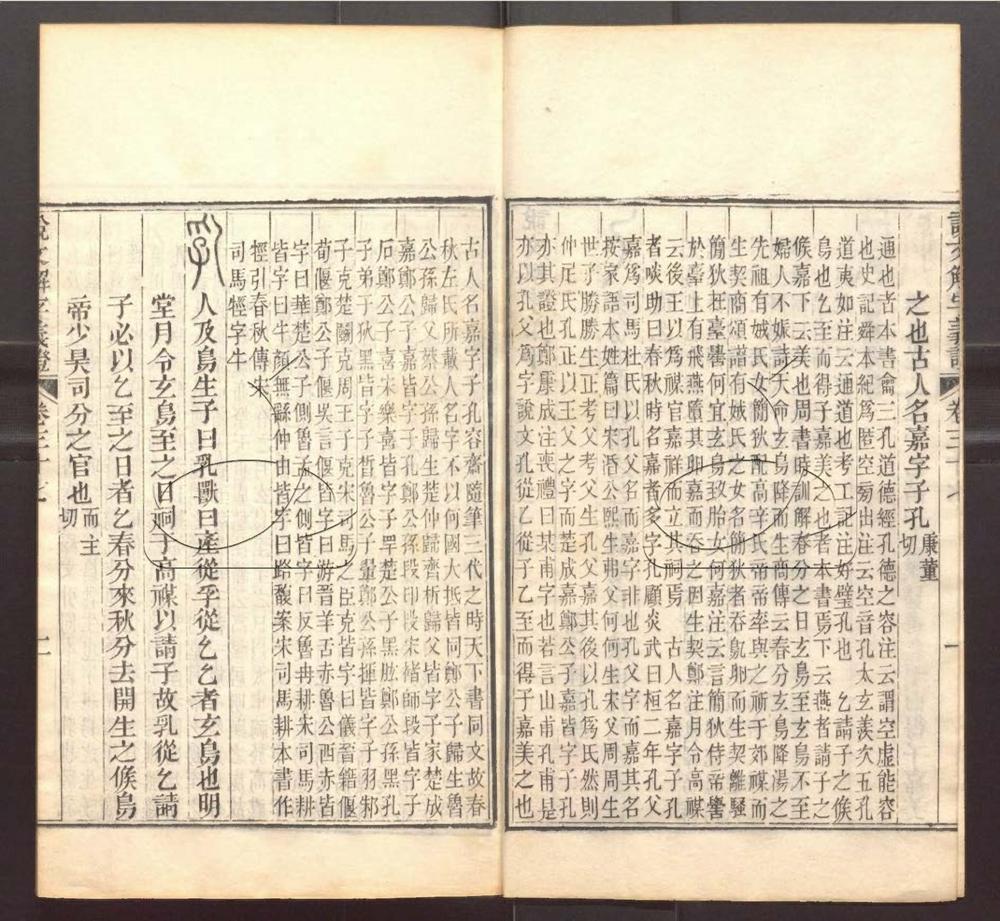 說文解字義證 卷三十七 一
之也古人名嘉字子孔 康董切
通也者本書龠三孔道德經孔德之容注云謂空虛能容
也史記舜本紀爲匿空㫄出注云空音孔太玄羨次五孔
道夷如注云通道也考工記注好璧孔也 乞請子之候
鳥也乞至而得子嘉美之也者本書焉下云燕者請子之
候嘉下云美也周書時訓解春分之日玄鳥至玄鳥不至
婦人不娠詩天命玄鳥降而生商傳云春分玄鳥降湯之
先祖有娀氏女簡狄配高辛氏帝帝率與之祈于郊禖而
生契有娀氏之女名簡狄者吞鳦卵而生契離騷
簡狄在臺嚳何宜玄鳥致胎女何嘉注云言簡狄侍帝嚳
於臺上有飛燕墮遺其卵嘉而吞之因生契鄭注月令高禖
云後王以爲禖官嘉祥而立其祠焉 古人名嘉字子孔
者啖助曰春秋時名嘉者多字孔顧炎武曰桓二年孔父
嘉爲司馬杜氏以孔父名而嘉字非也孔父字而嘉其名
按家語本姓篇曰宋湣公熙生弗父何何生宋父周周生
世子勝勝生正考父考父生孔父嘉其後以孔爲氏然則
仲尼氏孔正以王父之字而楚成嘉鄭公子嘉皆字子孔
亦其證也鄭康成注喪禮曰某甫字也若言山甫孔甫是
亦以孔父爲字說文孔從乞從子乞至而得子嘉美之也
古人名嘉字子孔容齋隨筆三代之時天下書同文故春
秋左氏所載人名字不以何國大抵皆同鄭公子歸生魯
公孫歸父蔡公孫歸生楚仲歸齊析歸父皆字子家楚成
嘉鄭公子嘉皆字子孔鄭公孫段印段宋褚師段皆字子
石鄭公子喜宋樂喜皆字子罕楚公子黑肱鄭公孫黑孔
子弟子狄黑皆字子晳魯公子翬鄭公孫揮皆字子羽邾
子克楚鬬克周王子克宋司馬之臣克皆字曰儀晉籍偃
荀偃鄭公子偃吳言偃皆字曰游晉羊舌赤魯公西赤皆
字曰華楚公子側魯孟之側皆字曰反魯冉耕宋司馬耕
皆字曰牛顏無繇仲由皆字曰路馥案宋司馬耕本書作
牼引春秋傳宋
司馬牼字牛
乳 人及鳥生子曰乳獸曰產從孚從乞乞者玄鳥也明
堂月令玄鳥至之日祠于高禖以請子故乳從乞請
子必以乞至之日者乞春分來秋分去開生之候鳥
帝少昊司分之官也 而主切
說文解字義證 卷三十七 二